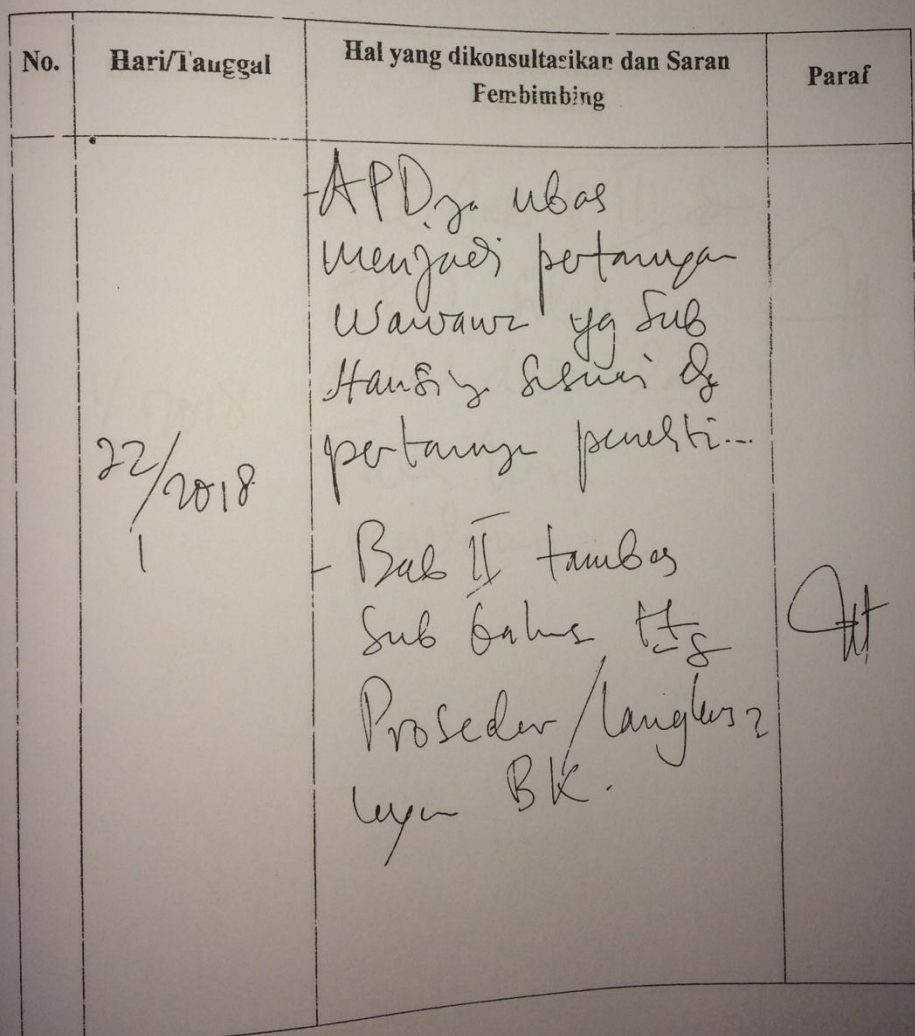 No. Hari/Tanggal Hal yang dikonsultasikan dan Saran Paraf
Pembimbing
- APDnya ubah
menjadi pertanyaan
wawanc yg Sub
sesuai dg
pertanya peneliti...
22/1/2018
- Bab II tambah
Sub bahas ttg
Prosedur/langkah2
layan BK.